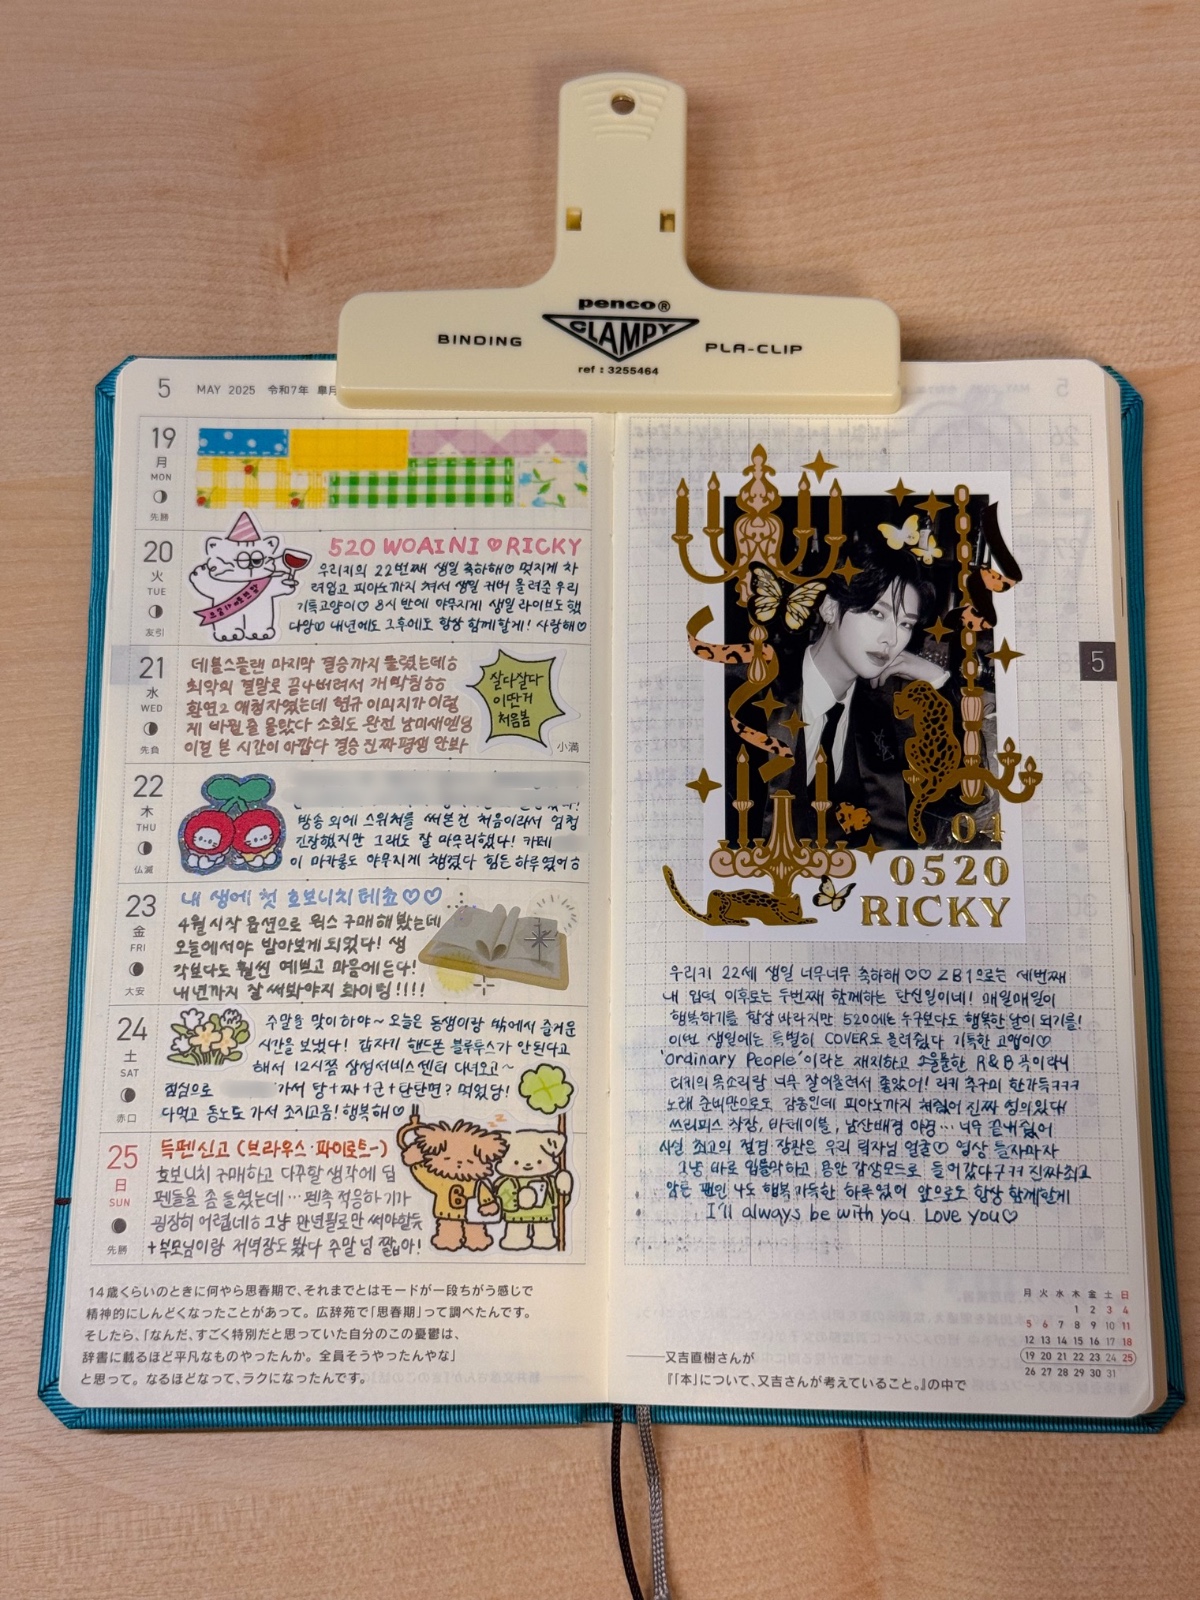 penco®
CLAMPY
BINDING
PLA-CLIP
ref : 3255464
5 MAY 2025 令和7年 皐月
19
月
MON
先勝
20
火
TUE
友引
520 WOAINI ♡ RICKY
우리키의 22번째 생일 축하해♡ 멋지게 차
려입고 피아노까지 쳐서 생일 커버 올려준 우리
기특고양이♡ 8시 반에 야무지게 생일 라이브도 했
다앙♡ 내년에도 그후에도 항상 함께할게! 사랑해♡
21
水
WED
先負
데블스플랜 마지막 결승까지 풀렸는데ㅎ
최악의 결말로 끝나버려서 개빡침ㅎㅎ
환연2 애청자였는데 현규 이미지가 이렇
게 바뀔 줄 몰랐다 소희도 완전 남미새엔딩
이걸 본 시간이 아깝다 결승 진짜 평생 안봐
살다살다
이딴거
처음봄
小満
22
木
THU
仏滅
방송 외에 스위처를 써본건 처음이라서 엄청
긴장했지만 그래도 잘 마무리했다! 카페
이 마카롱도 야무지게 챙겼다 힘든 하루였어ㅎ
23
金
FRI
大安
내 생에 첫 호보니치 테쵸♡♡
4월 시작 옵션으로 윅스 구매해봤는데
오늘에서야 받아보게 되었다! 생
각보다도 훨씬 예쁘고 마음에 든다!
내년까지 잘 써봐야지 화이팅!!!!
24
土
SAT
赤口
주말을 맞이하야~ 오늘은 동생이랑 밖에서 즐거운
시간을 보냈다! 갑자기 핸드폰 블루투스가 안된다고
해서 12시쯤 삼성서비스센터 다녀오고~
점심으로 가서 탕+짜+군+단단면? 먹었당!
다먹고 동노도 가서 조지고옴! 행복해♡
25
日
SUN
先勝
득펜신고 (브라우스·파이로트-)
호보니치 구매하고 다꾸할 생각에 딥
펜들을 좀 돌렸는데… 펜촉 적응하기가
굉장히 어렵네ㅎ 그냥 만년필로만 써야할듯
+부모님이랑 저녁장도 봤다 주말 넘 짧아!
6
14歳くらいのときに何やら思春期で、それまでとはモードが一段ちがう感じで
精神的にしんどくなったことがあって。広辞苑で「思春期」って調べたんです。
そしたら、「なんだ、すごく特別だと思っていた自分のこの憂鬱は、
辞書に載るほど平凡なものやったんか。全員そうやったんやな」
と思って。なるほどなって、ラクになったんです。
04
0520
RICKY
5
우리키 22세 생일 너무너무 축하해 ♡♡ ZB1으로는 세번째
내 입덕 이후로는 두번째 함께하는 탄신일이네! 매일매일이
행복하기를 항상 바라지만 520에는 누구보다도 행복한 날이 되기를!
이번 생일에는 특별히 COVER도 올려줬다 기특한 고앵이♡
'Ordinary People'이라는 재지하고 소울풀한 R&B 곡이라니
리키의 목소리랑 너무 잘 어울려서 좋았어! 리키 추구미 한가득ㅋㅋㅋ
노래 준비만으로도 감동인데 피아노까지 쳐줬어 진짜 성의있다!
쓰리피스 착장, 바 테이블, 남산배경 야경… 너무 끝내줬어
사실 최고의 절경 장관은 우리 릭자님 얼굴♡ 영상 틀자마자
그냥 바로 입틀막하고 용안 감상모드로 들어갔다구ㅋㅋ 진짜 최고
암튼 팬인 나도 행복 가득한 하루였어 앞으로도 항상 함께할게
I'll always be with you. Love you♡
月 火 水 木 金 土 日
1 2 3 4
5 6 7 8 9 10 11
12 13 14 15 16 17 18
19 20 21 22 23 24 25
26 27 28 29 30 31
又吉直樹さんが
『「本」について、又吉さんが考えていること。』の中で